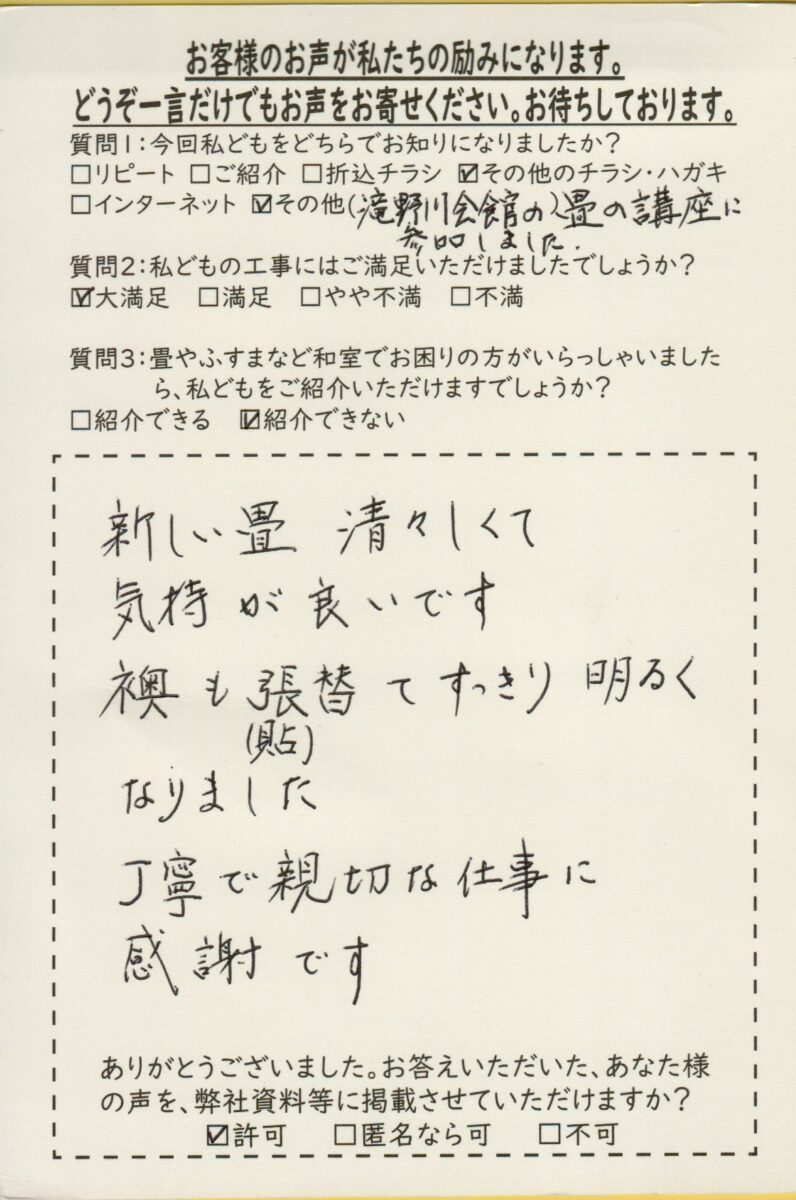 お客様のお声が私たちの励みになります。
どうぞ一言だけでもお声をお寄せください。お待ちしております。
質問1：今回私どもをどちらでお知りになりましたか？
□リピート □ご紹介 □折込チラシ ☑その他のチラシ・ハガキ
□インターネット ☑その他(滝野川会館の)畳の講座に
参加しました.
質問2：私どもの工事にはご満足いただけましたでしょうか？
☑大満足 □満足 □やや不満 □不満
質問3：畳やふすまなど和室でお困りの方がいらっしゃいました
ら、私どもをご紹介いただけますでしょうか？
□紹介できる ☑紹介できない
新しい畳 清々しくて
気持が良いです
襖も張替てすっきり明るく
(貼)
なりました
丁寧で親切な仕事に
感謝です
ありがとうございました。お答えいただいた、あなた様
の声を、弊社資料等に掲載させていただけますか？
☑許可 □匿名なら可 □不可